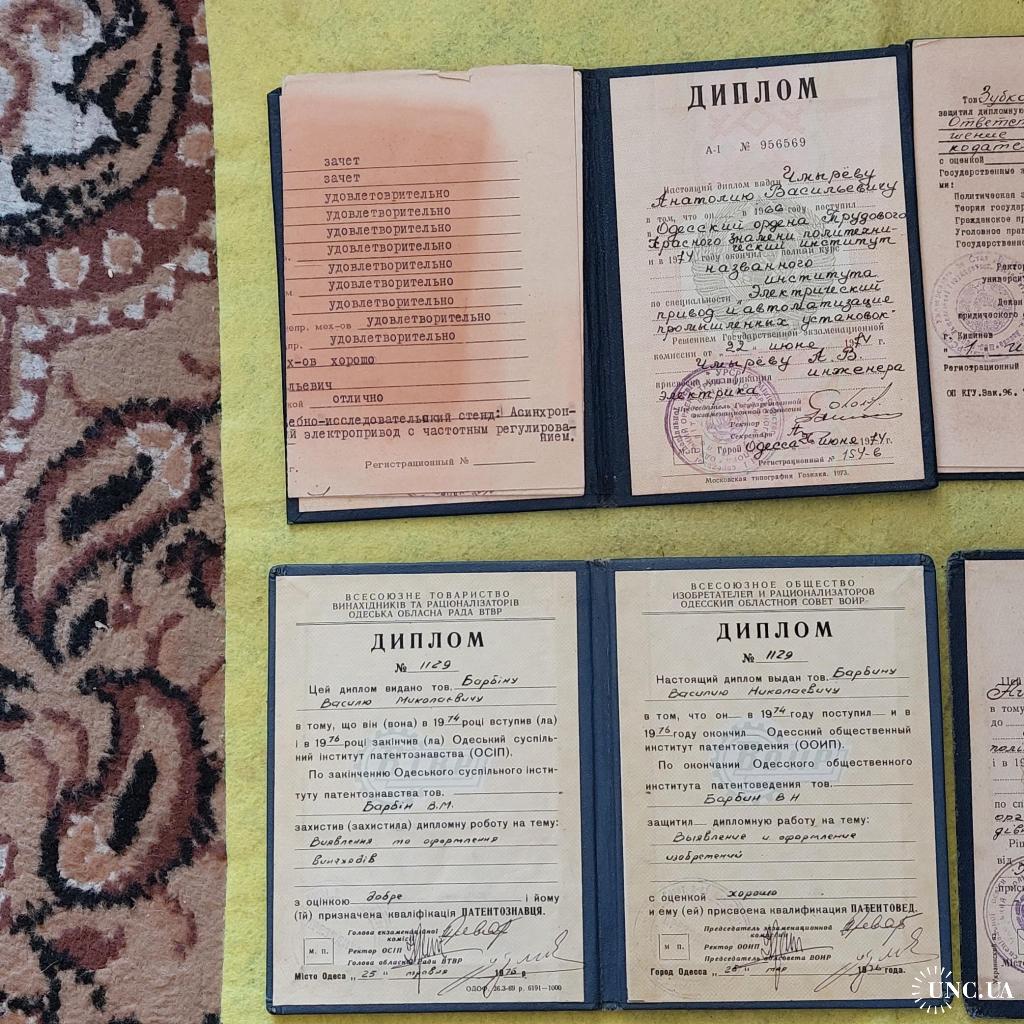 зачет
зачет
удовлетоврительно
удовлетворительно
удовлетворительно
удовлетворительно
удовлетворительно
удовлетворительно
удовлетворительно
епр. мех-ов удовлетворительно
удовлетворительно
х-ов хорошо
льевич
кой отлично
ебно-исследовательский стенд: Асинхрон-
й электропривод с частотным регулирова-
нием.
г.
Регистрационный №
ДИПЛОМ
А-I № 956569
Настоящий диплом выдан Чмырёву
Анатолию Васильевичу
в том, что он в 1966 году поступил
в Одесский ордена Трудового
Красного Знамени политехни-
ческий институт
и в 1974 году окончил полный курс
названного
института
по специальности „Электрический
привод и автоматизация
промышленных установок"
Решением Государственной экзаменационной
комиссии от „22" июня 1974 г.
Чмырёву А. В.
присвоена квалификация инженера
электрика
Председатель Государственной
экзаменационной комиссии
Ректор
Секретарь
Город Одесса июня 1974 г.
Регистрационный № 154-в
Московская типография Гознака. 1973.
Тов Зубко
защитил дипломную
Ответст
шение
кодате
с оценкой
Государственные э
ми:
Политическая э
Теория государ
Гражданское пр
Уголовное прав
Государственно
Ректор
университ
Декан
юридического ф
г. Кишинев
Регистрационный
ОП КГУ.Зак.96.
ВСЕСОЮЗНЕ ТОВАРИСТВО
ВИНАХІДНИКІВ ТА РАЦІОНАЛІЗАТОРІВ
ОДЕСЬКА ОБЛАСНА РАДА ВТВР
ДИПЛОМ
№ 1129
Цей диплом видано тов. Барбіну
Василю Миколаєвичу
в тому, що він (вона) в 1974 році вступив (ла)
і в 1976 році закінчив (ла) Одеський суспіль-
ний інститут патентознавства (ОСІП).
По закінченню Одеського суспільного інсти-
туту патентознавства тов.
Барбін В.М.
захистив (захистила) дипломну роботу на тему:
Виявлення та оформлення
винаходів
з оцінкою добре і йому
(їй) призначена кваліфікація ПАТЕНТОЗНАВЦЯ.
Голова екзаменаційної
комісії
М. П.
Ректор ОСІП
Голова обласної Ради ВТВР
Місто Одеса „25" травня 1976 р.
ОДОФ 26.3-69 р. 6191—1000
ВСЕСОЮЗНОЕ ОБЩЕСТВО
ИЗОБРЕТАТЕЛЕЙ И РАЦИОНАЛИЗАТОРОВ
ОДЕССКИЙ ОБЛАСТНОЙ СОВЕТ ВОИР
ДИПЛОМ
№ 1129
Настоящий диплом выдан тов. Барбину
Василию Николаевичу
в том, что он в 1974 году поступил и в
1976 году окончил Одесский общественный
институт патентоведения (ООИП).
По окончании Одесского общественного
института патентоведения тов.
Барбин В Н
защитил дипломную работу на тему:
Выявление и оформление
изобретений
с оценкой хорошо
и ему (ей) присвоена квалификация ПАТЕНТОВЕД.
Председатель экзаменационной
комиссии
М П.
Ректор ООИП
Председатель облсовета ВОИР
Город Одесса „25" мая 1976 года.
Цей
в тому
до
полі
і в 19
по спе
орга
діві
Ріш
від
присвоє
Місто
UNC.UA